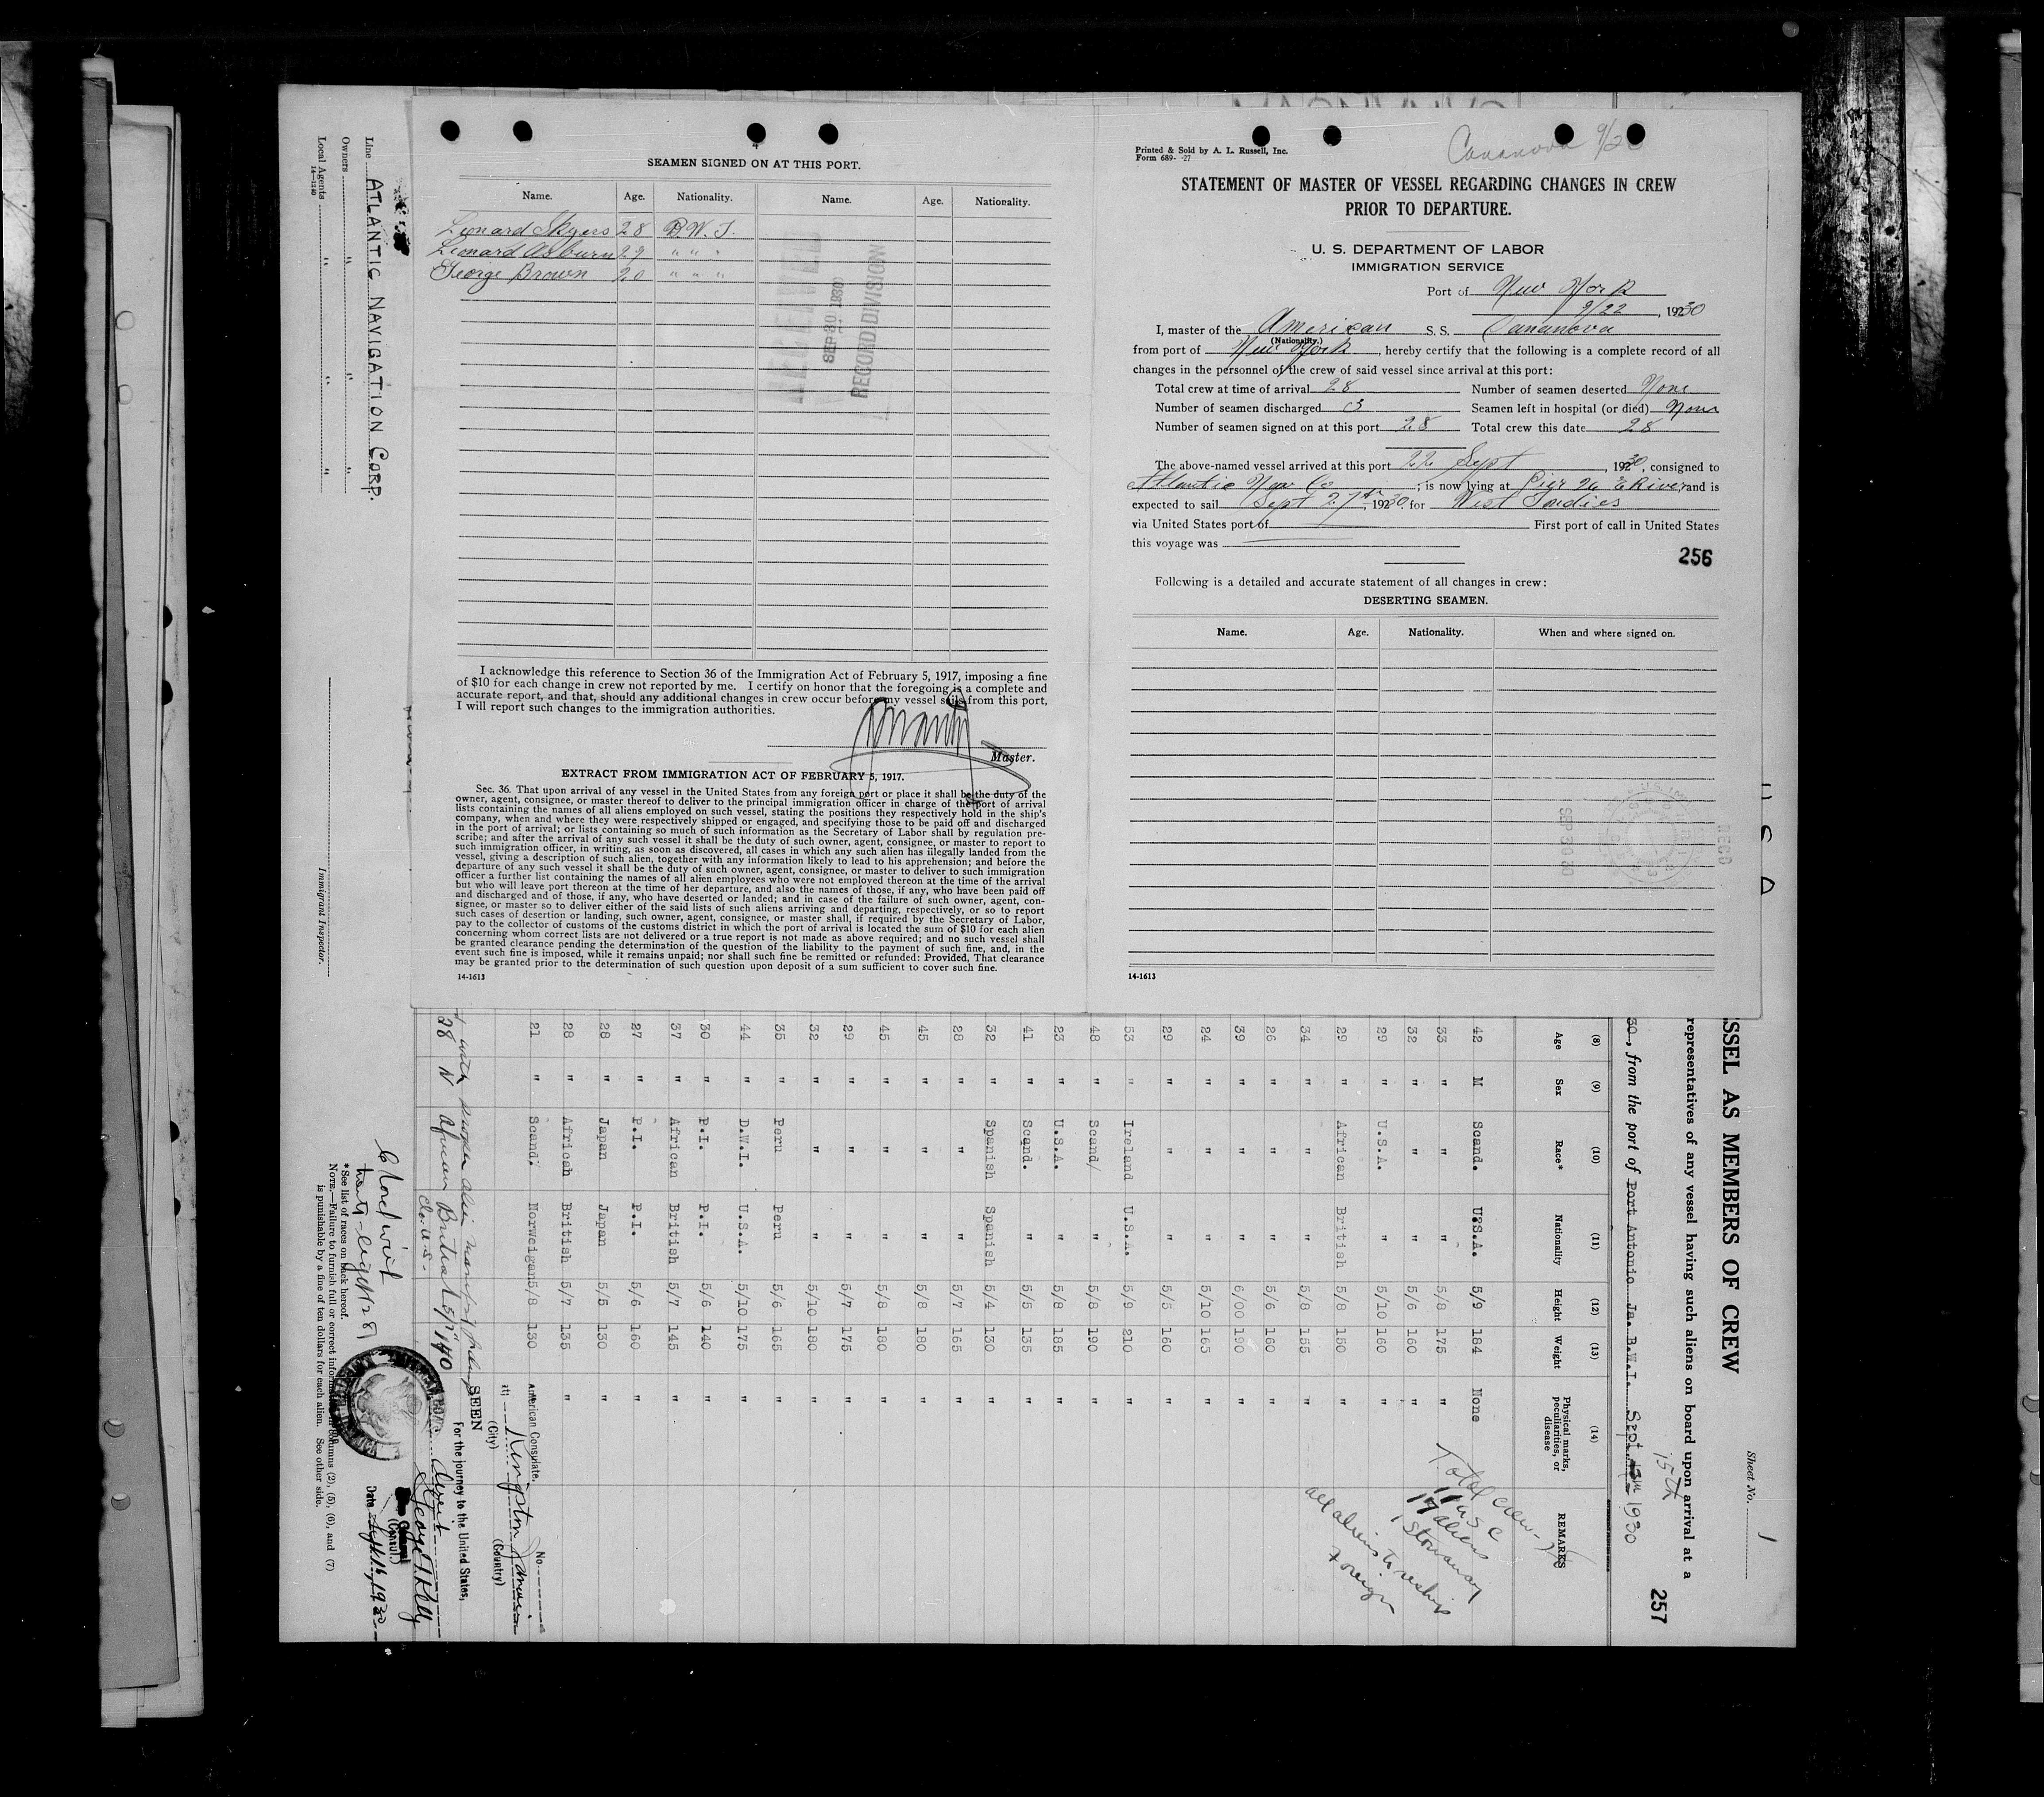 4
SEAMEN SIGNED ON AT THIS PORT.
Name. Age. Nationality. Name. Age. Nationality.
Leonard Skyers 28 B.W.I.
Leonard Asburn 29 " " "
George Brown 20 " " "
RECEIVED
SEP 30 1930
RECORD DIVISION
I acknowledge this reference to Section 36 of the Immigration Act of February 5, 1917, imposing a fine
of $10 for each change in crew not reported by me. I certify on honor that the foregoing is a complete and
accurate report, and that, should any additional changes in crew occur before my vessel sails from this port,
I will report such changes to the immigration authorities.
Master.
EXTRACT FROM IMMIGRATION ACT OF FEBRUARY 5, 1917.
Sec. 36. That upon arrival of any vessel in the United States from any foreign port or place it shall be the duty of the
owner, agent, consignee, or master thereof to deliver to the principal immigration officer in charge of the port of arrival
lists containing the names of all aliens employed on such vessel, stating the positions they respectively hold in the ship's
company, when and where they were respectively shipped or engaged, and specifying those to be paid off and discharged
in the port of arrival; or lists containing so much of such information as the Secretary of Labor shall by regulation pre-
scribe; and after the arrival of any such vessel it shall be the duty of such owner, agent, consignee, or master to report to
such immigration officer, in writing, as soon as discovered, all cases in which any such alien has illegally landed from the
vessel, giving a description of such alien, together with any information likely to lead to his apprehension; and before the
departure of any such vessel it shall be the duty of such owner, agent, consignee, or master to deliver to such immigration
officer a further list containing the names of all alien employees who were not employed thereon at the time of the arrival
but who will leave port thereon at the time of her departure, and also the names of those, if any, who have been paid off
and discharged and of those, if any, who have deserted or landed; and in case of the failure of such owner, agent, con-
signee, or master so to deliver either of the said lists of such aliens arriving and departing, respectively, or so to report
such cases of desertion or landing, such owner, agent, consignee, or master shall, if required by the Secretary of Labor,
pay to the collector of customs of the customs district in which the port of arrival is located the sum of $10 for each alien
concerning whom correct lists are not delivered or a true report is not made as above required; and no such vessel shall
be granted clearance pending the determination of the question of the liability to the payment of such fine, and, in the
event such fine is imposed, while it remains unpaid; nor shall such fine be remitted or refunded: Provided, That clearance
may be granted prior to the determination of such question upon deposit of a sum sufficient to cover such fine.
14-1613
Cananova 9/20
Printed & Sold by A. L. Russell, Inc.
Form 689- -27
STATEMENT OF MASTER OF VESSEL REGARDING CHANGES IN CREW
PRIOR TO DEPARTURE.
U. S. DEPARTMENT OF LABOR
IMMIGRATION SERVICE
Port of New York
9/22, 19230
I, master of the American S. S. Cananova
(Nationality.)
from port of New York, hereby certify that the following is a complete record of all
changes in the personnel of the crew of said vessel since arrival at this port:
Total crew at time of arrival 28 Number of seamen deserted None
Number of seamen discharged 3 Seamen left in hospital (or died) None
Number of seamen signed on at this port 28 Total crew this date 28
The above-named vessel arrived at this port 22 Sept, 19230, consigned to
Atlantic Nav Co; is now lying at Pier 26 E River and is
expected to sail Sept 27th, 19230, for West Indies
via United States port of First port of call in United States
this voyage was
256
Following is a detailed and accurate statement of all changes in crew:
DESERTING SEAMEN.
Name. Age. Nationality. When and where signed on.
REC'D
SEP 30 30
14-1613
Line ATLANTIC NAVIGATION CORP.
Owners " " "
Local Agents " " "
14-1240
Immigrant Inspector.
Sheet No. 1
SSEL AS MEMBERS OF CREW
representatives of any vessel having such aliens on board upon arrival at a
257
15th
30, from the port of Port Antonio Ja. B.W.I. Sept. 1930
(8) (9) (10) (11) (12) (13) (14)
Age Sex Race* Nationality Height Weight Physical marks, peculiarities, or disease REMARKS
42 M Scand. U.S.A. 5/9 184 None
33 " " " 5/8 175 "
32 " " " 5/6 160 "
29 " U.S.A. " 5/10 160 "
29 " African British 5/8 150 "
34 " " " 5/8 155 "
26 " " " 5/6 160 "
39 " " " 6/00 190 "
24 " " " 5/10 165 "
29 " " " 5/5 160 "
53 " Ireland U.S.A. 5/9 210 "
48 " Scand/ " 5/8 190 "
23 " U.S.A. " 5/8 185 "
41 " Scand. " 5/5 135 "
32 " Spanish Spanish 5/4 130 "
28 " " " 5/7 165 "
45 " " " 5/8 180 "
45 " " " 5/8 180 "
29 " " " 5/7 175 "
32 " " " 5/10 180 "
35 " Peru Peru 5/6 165 "
44 " D.W.I. U.S.A. 5/10 175 "
30 " P.I. P.I. 5/6 140 "
37 " African British 5/7 145 "
27 " P.I. P.I. 5/6 160 "
28 " Japan Japan 5/5 130 "
28 " African British 5/7 135 "
21 " Scand. Norweigan 5/8 130
Total crew
11 USC
17 aliens
1 Stowaway
all aliens to reship
foreign
28 N African British 5/7 140
American Consulate.
No.
at: Kingston Jamaica
(City) (Country)
SEEN
For the journey to the United States,
George A. Kelly
(Consul)
Date Sept. 16, 1930
Closed with
twenty-eight 28
*See list of races on back hereof.
NOTE.—Failure to furnish full or correct information in columns (2), (5), (6), and (7)
is punishable by a fine of ten dollars for each alien. See other side.